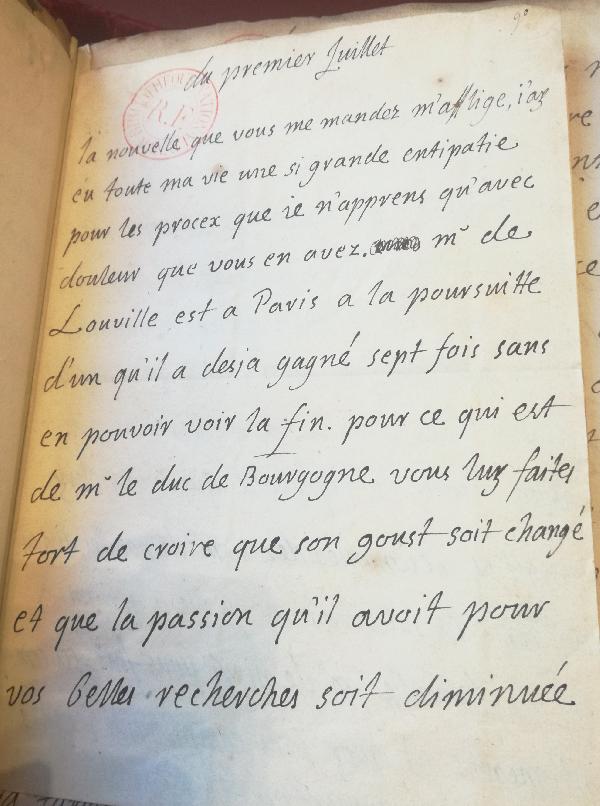 90
du premier Juillet
la nouvelle que vous me mandez m'afflige, i'ay
eu toute ma vie une si grande entipatie
pour les procex que ie n'apprens qu'avec
douleur que vous en avez. mr de
Louville est a Paris a la poursuitte
d'un qu'il a desja gagné sept fois sans
en pouvoir voir la fin. pour ce qui est
de mr le duc de Bourgogne vous luy faites
tort de croire que son goust soit changé
et que la passion qu'il avoit pour
vos belles recherches soit diminuée
R.F.